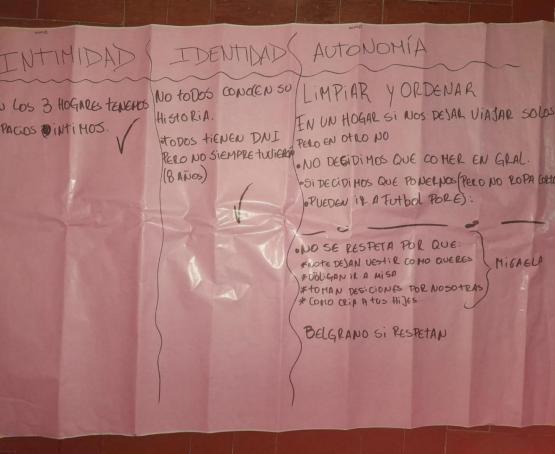 INTIMIDAD
LOS 3 HOGARES TENEMOS
INTIMOS.
IDENTIDAD
NO TODOS CONOCEN SU
HISTORIA.
•TODOS TIENEN DNI
PERO NO SIEMPRE TUVIERON
(8 AÑOS)
AUTONOMÍA
LIMPIAR Y ORDENAR
EN UN HOGAR SI NOS DEJAR VIAJAR SOLOS
PERO EN OTRO NO
•NO DECIDIMOS QUE COMER EN GRAL.
•SI DECIDIMOS QUE PONERNOS (PERO NO ROPA CORTA
•PUEDEN IR A FUTBOL POR EJ:
•NO SE RESPETA POR QUE:
*NOTE DEJAN VESTIR COMO QUERES
*OBLIGAN IR A MISA
*TOMAN DESICIONES POR NOSOTRAS
*COMO CRIA A TUS HIJES
MICAELA
BELGRANO SI RESPETAN